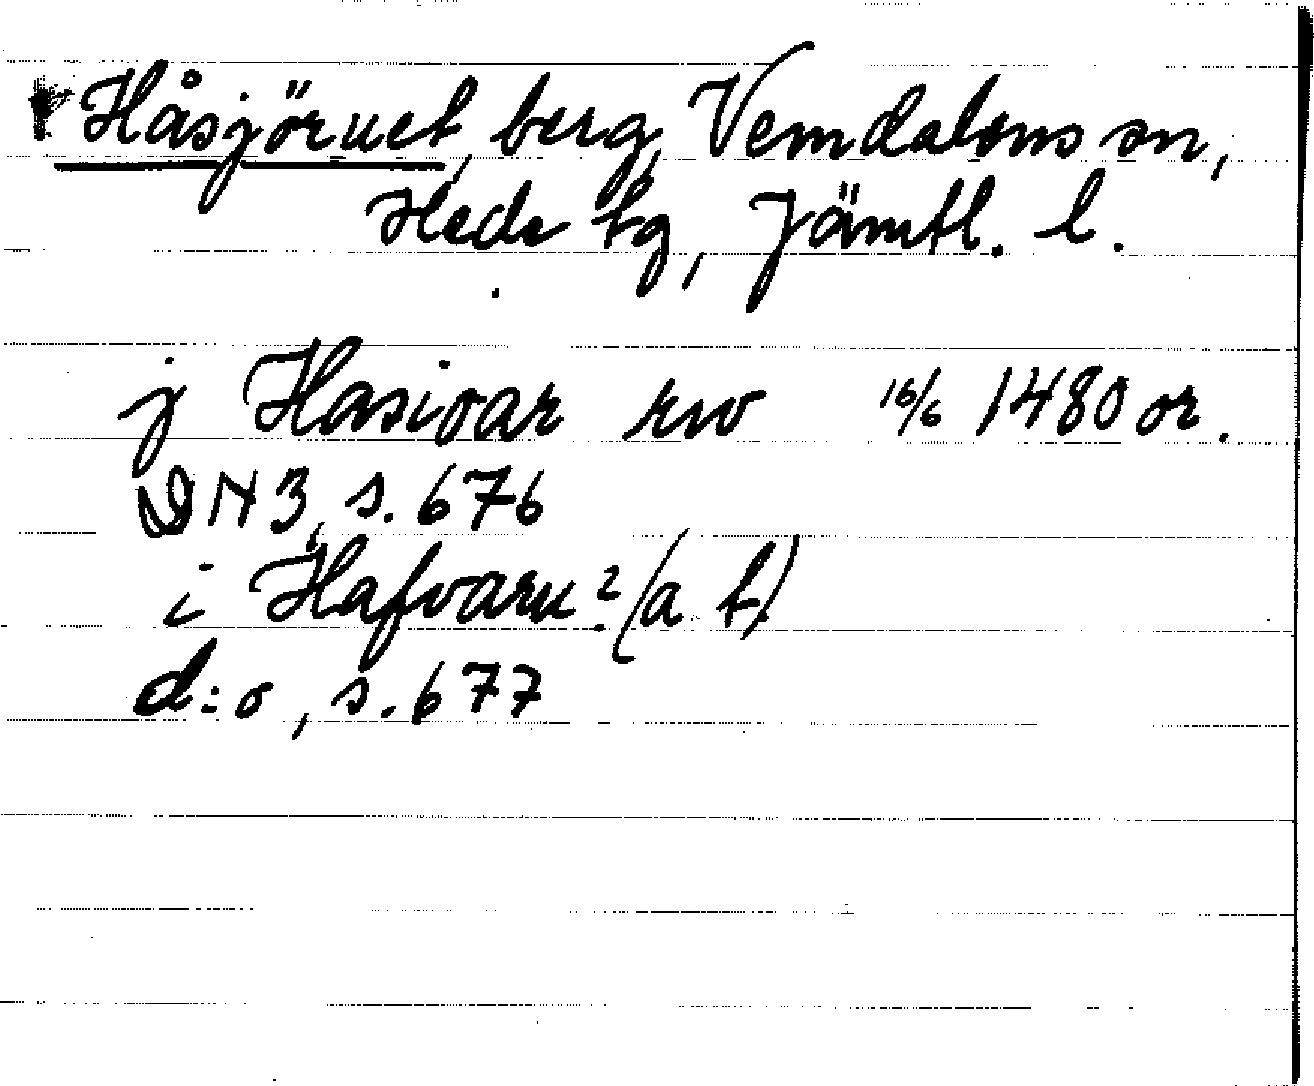 Håsjöruet, berg, Vemdalens sn,
Hede tg, Jämtl. l.
j Hasioar rw 16/6 1480 or.
DN 3, s. 676
i Hafvaru? (a. t)
d:o, s. 677